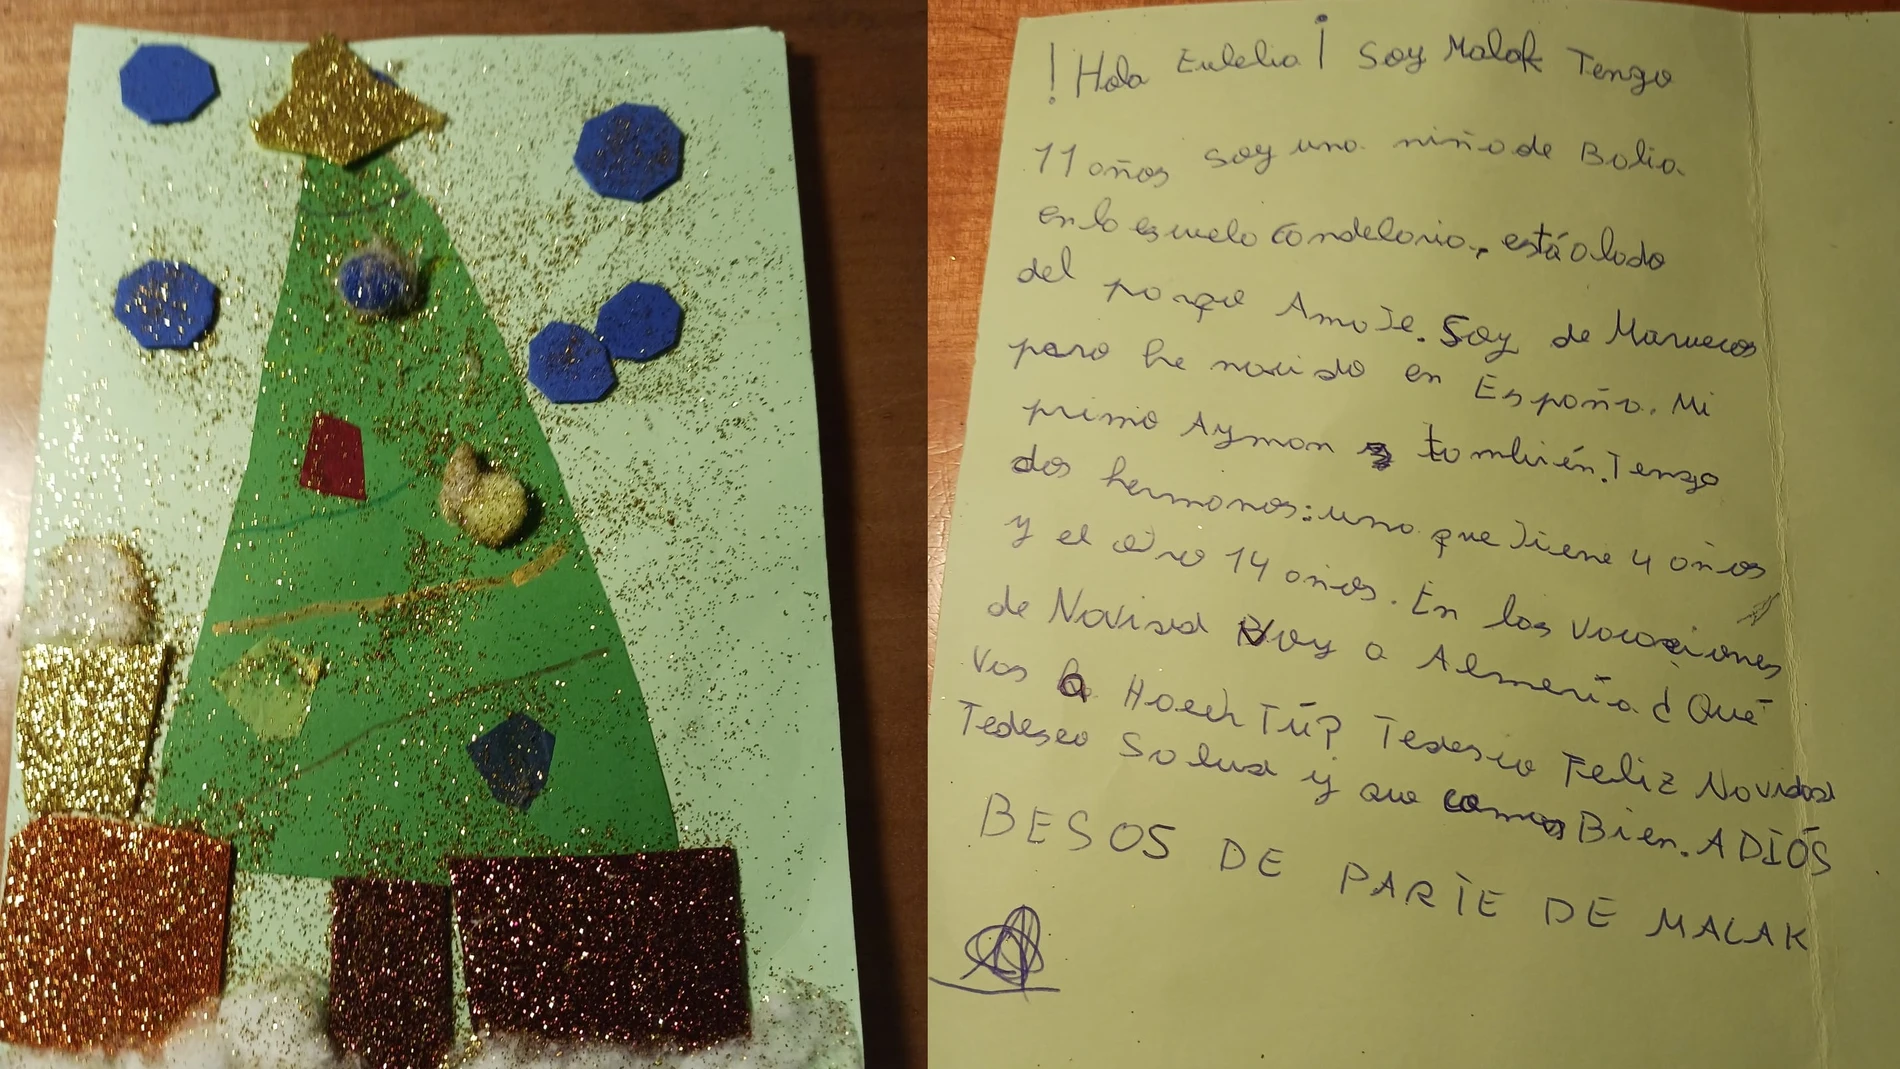 ! Hola Eulelia ¡ Soy Malak Tengo
11 años soy una niña de Bolia.
en la escuela Candelaria, está a lado
del parque Amate. Soy de Marruecos
pero he nacido en España. Mi
primo Ayman también. Tengo
dos hermanos: uno que tiene 4 años
y el otro 14 años. En las vacaciones
de Navidad Voy a Almería ¿Qué
Vas a Hacer Tú? Te deseo Feliz Navidad
Te deseo Salud y que comas Bien. ADIÓS
BESOS DE PARTE DE MALAK